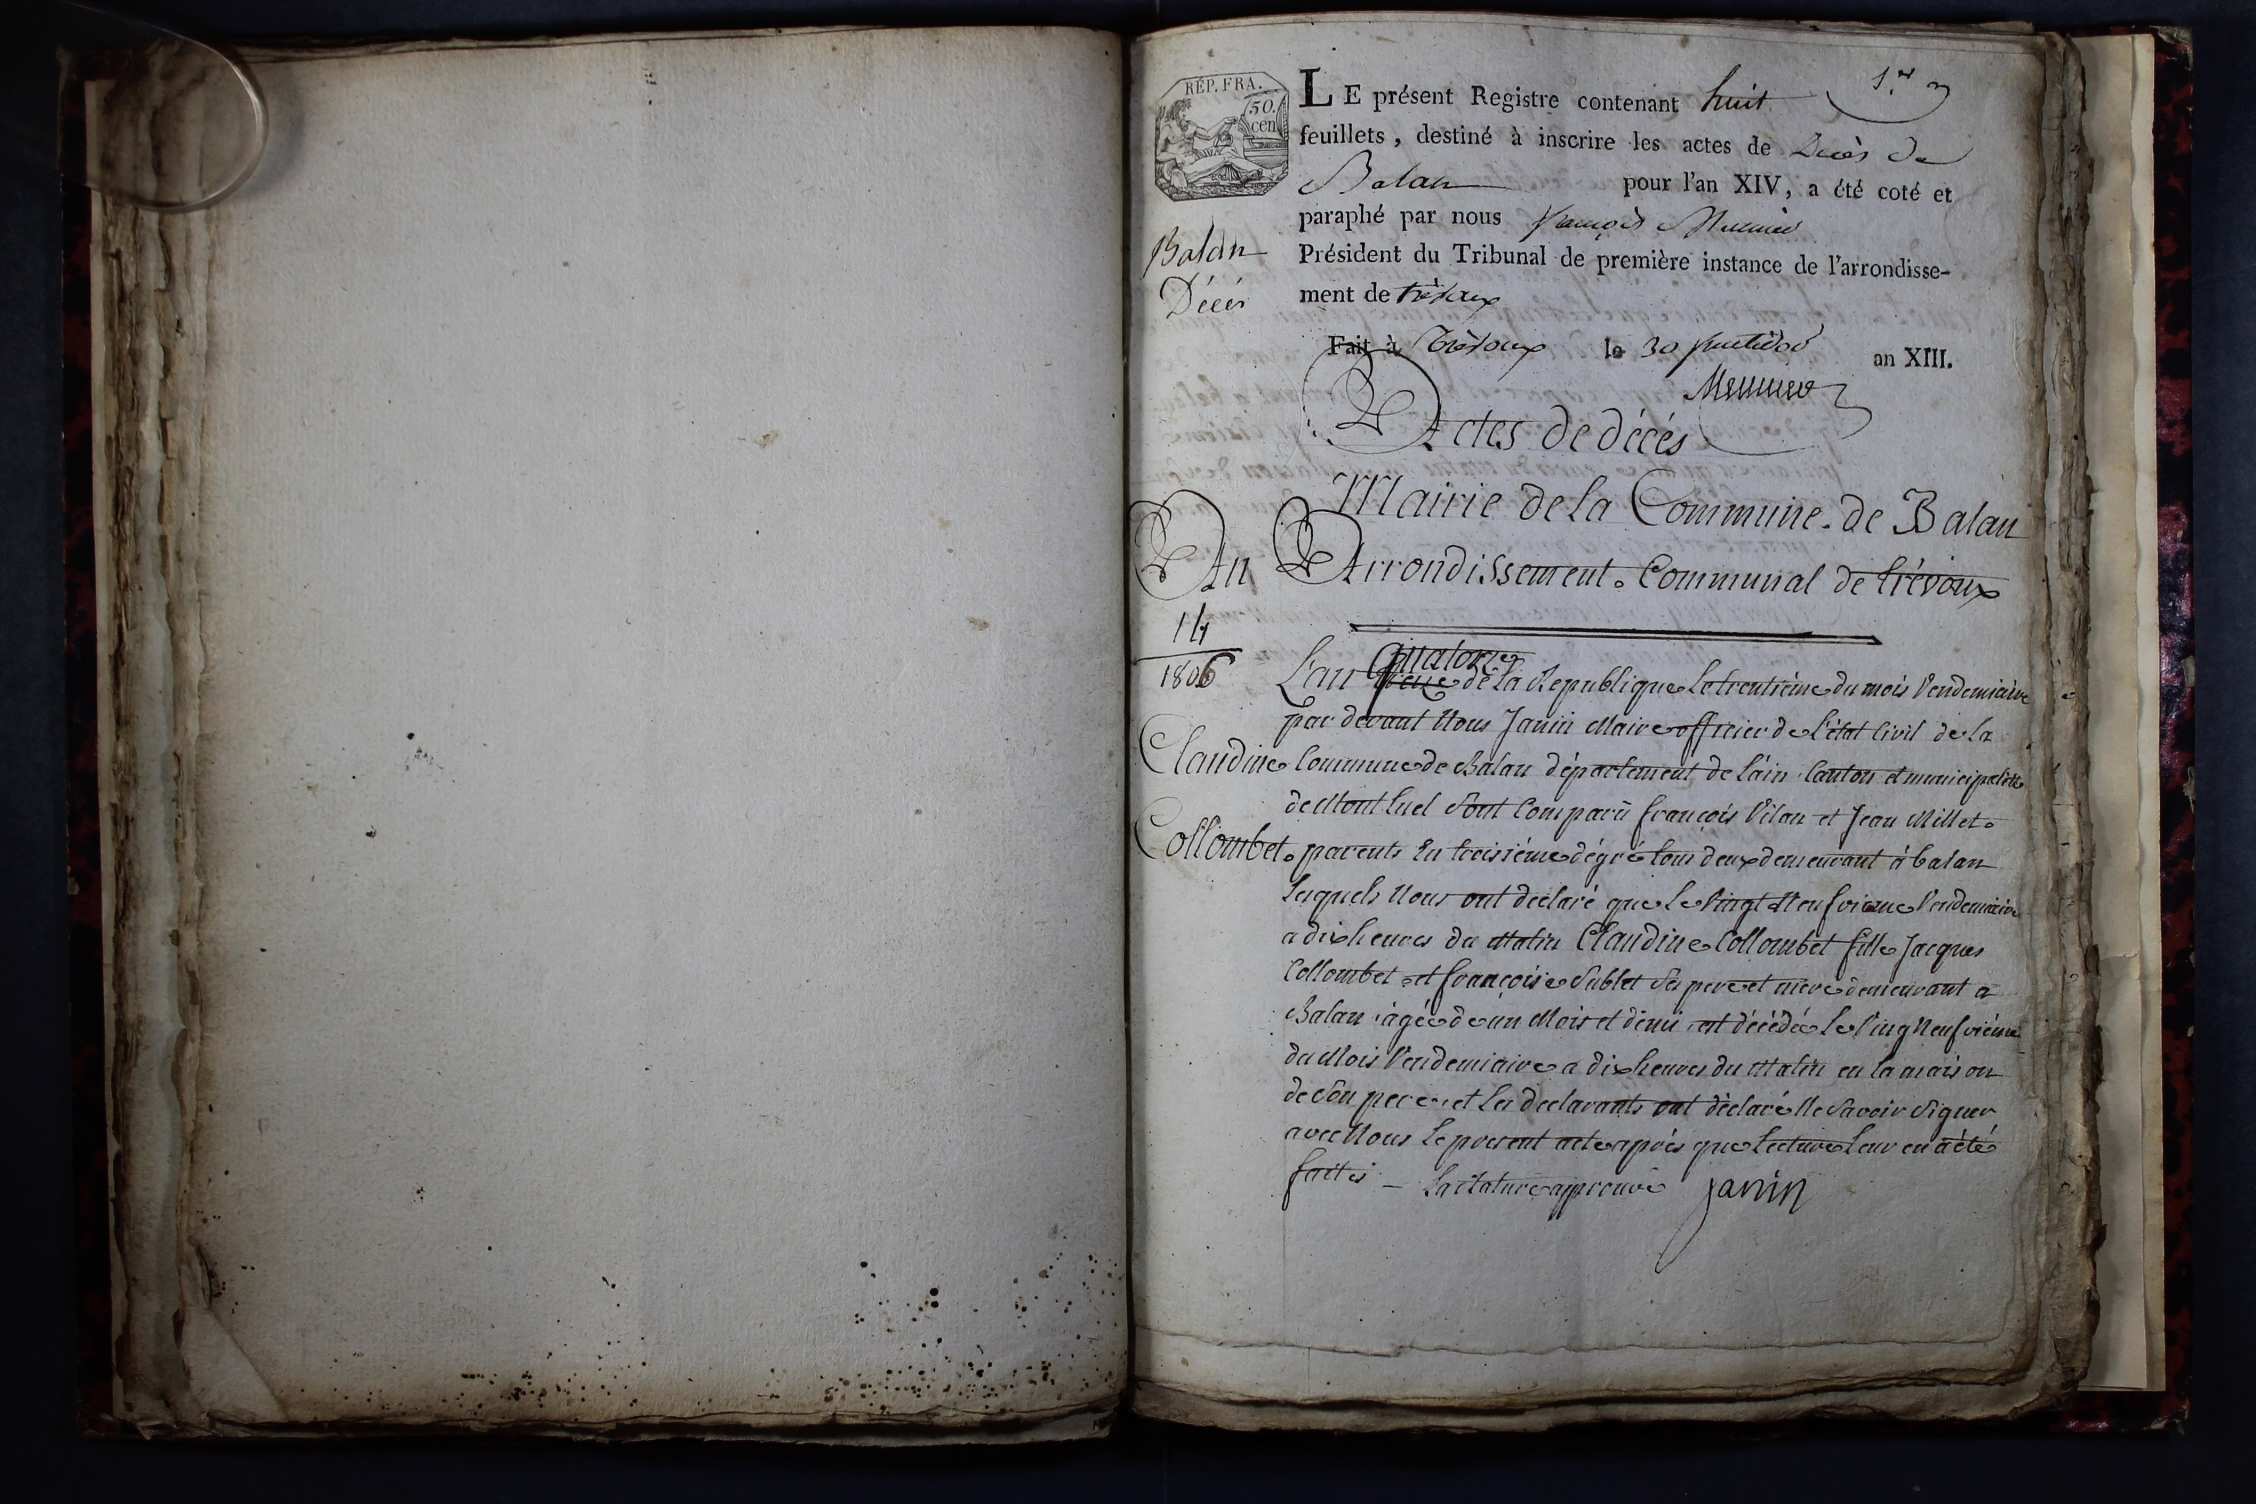 RÉP. FRA.
50.
cen
1.er
LE présent Registre contenant huit
feuillets, destiné à inscrire les actes de Décès de
Balan pour l'an XIV, a été coté et
paraphé par nous françois Munier
Balan
Décés
Président du Tribunal de première instance de l'arrondisse-
ment de trévoux
Fait à Trévoux le 30 fructidor an XIII.
Actes de décés
Mairie de la Commune de Balan
An Arrondissement Communal de trévoux
14
1806
L'an quatorze de la Republique le trentième du mois Vendemiaire
par devant Nous Janin Maire officier de l'état Civil de la
Claudine
Commune de Balan département de l'ain Canton et municipalité
de Montluel Sont Comparû françois Vilan et Jean Millet
Collombet
parents En troisiéme dégré tous deux demeurant à balan
lesquels Nous ont declaré que le Vingt Neufvieme Vendemiaire
a dix heures du Matin Claudine Collombet fille Jacques
Collombet et françoise Sublet Ses pere et mere demeurant a
Balan agée de un Mois et demi est décédée le Vingt Neufviéme
du Mois Vendemiaire a dix heures du Matin en la maison
de Son pere et les declarants ont déclaré Ne Savoir Signer
avec Nous le present acte aprés que lecture leur en a été
faites — aprouvé Janin